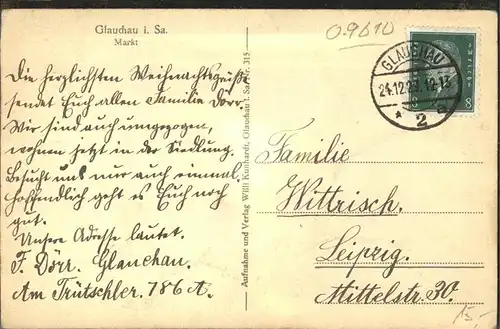 Glauchau i. Sa.
Markt
0.9610
GLAUCHAU
24.12.29. 12-13
* 2 a
8
Die herzlichsten Weihnachtsgrüße
sendet Euch allen Familie Dörr.
Wir sind auch umgezogen,
wohnen jetzt in der Siedlung.
Besucht uns nur auch einmal,
hoffendlich geht es Euch noch
gut.
Unsere Adresse lautet.
F. Dörr. Glauchau.
Am Trützschler. 786 A.
Aufnahme und Verlag Willi Kunhardt, Glauchau i. Sa. Nr. 315
Familie
Wittrisch.
Leipzig.
Mittelstr. 30.
15,-